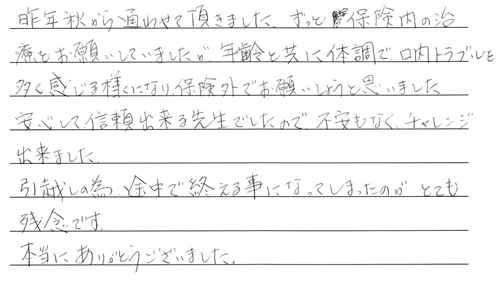 昨年秋から通わせて頂きました。ずっと保険内の治
療をお願いしていましたが、年齢と共に体調で口内トラブルを
多く感じる様になり、保険外でお願いしようと思いました
安心して信頼出来る先生でしたので不安もなく、チャレンジ
出来ました。
引越しの為、途中で終える事になってしまったのが とても
残念です。
本当にありがとうございました。